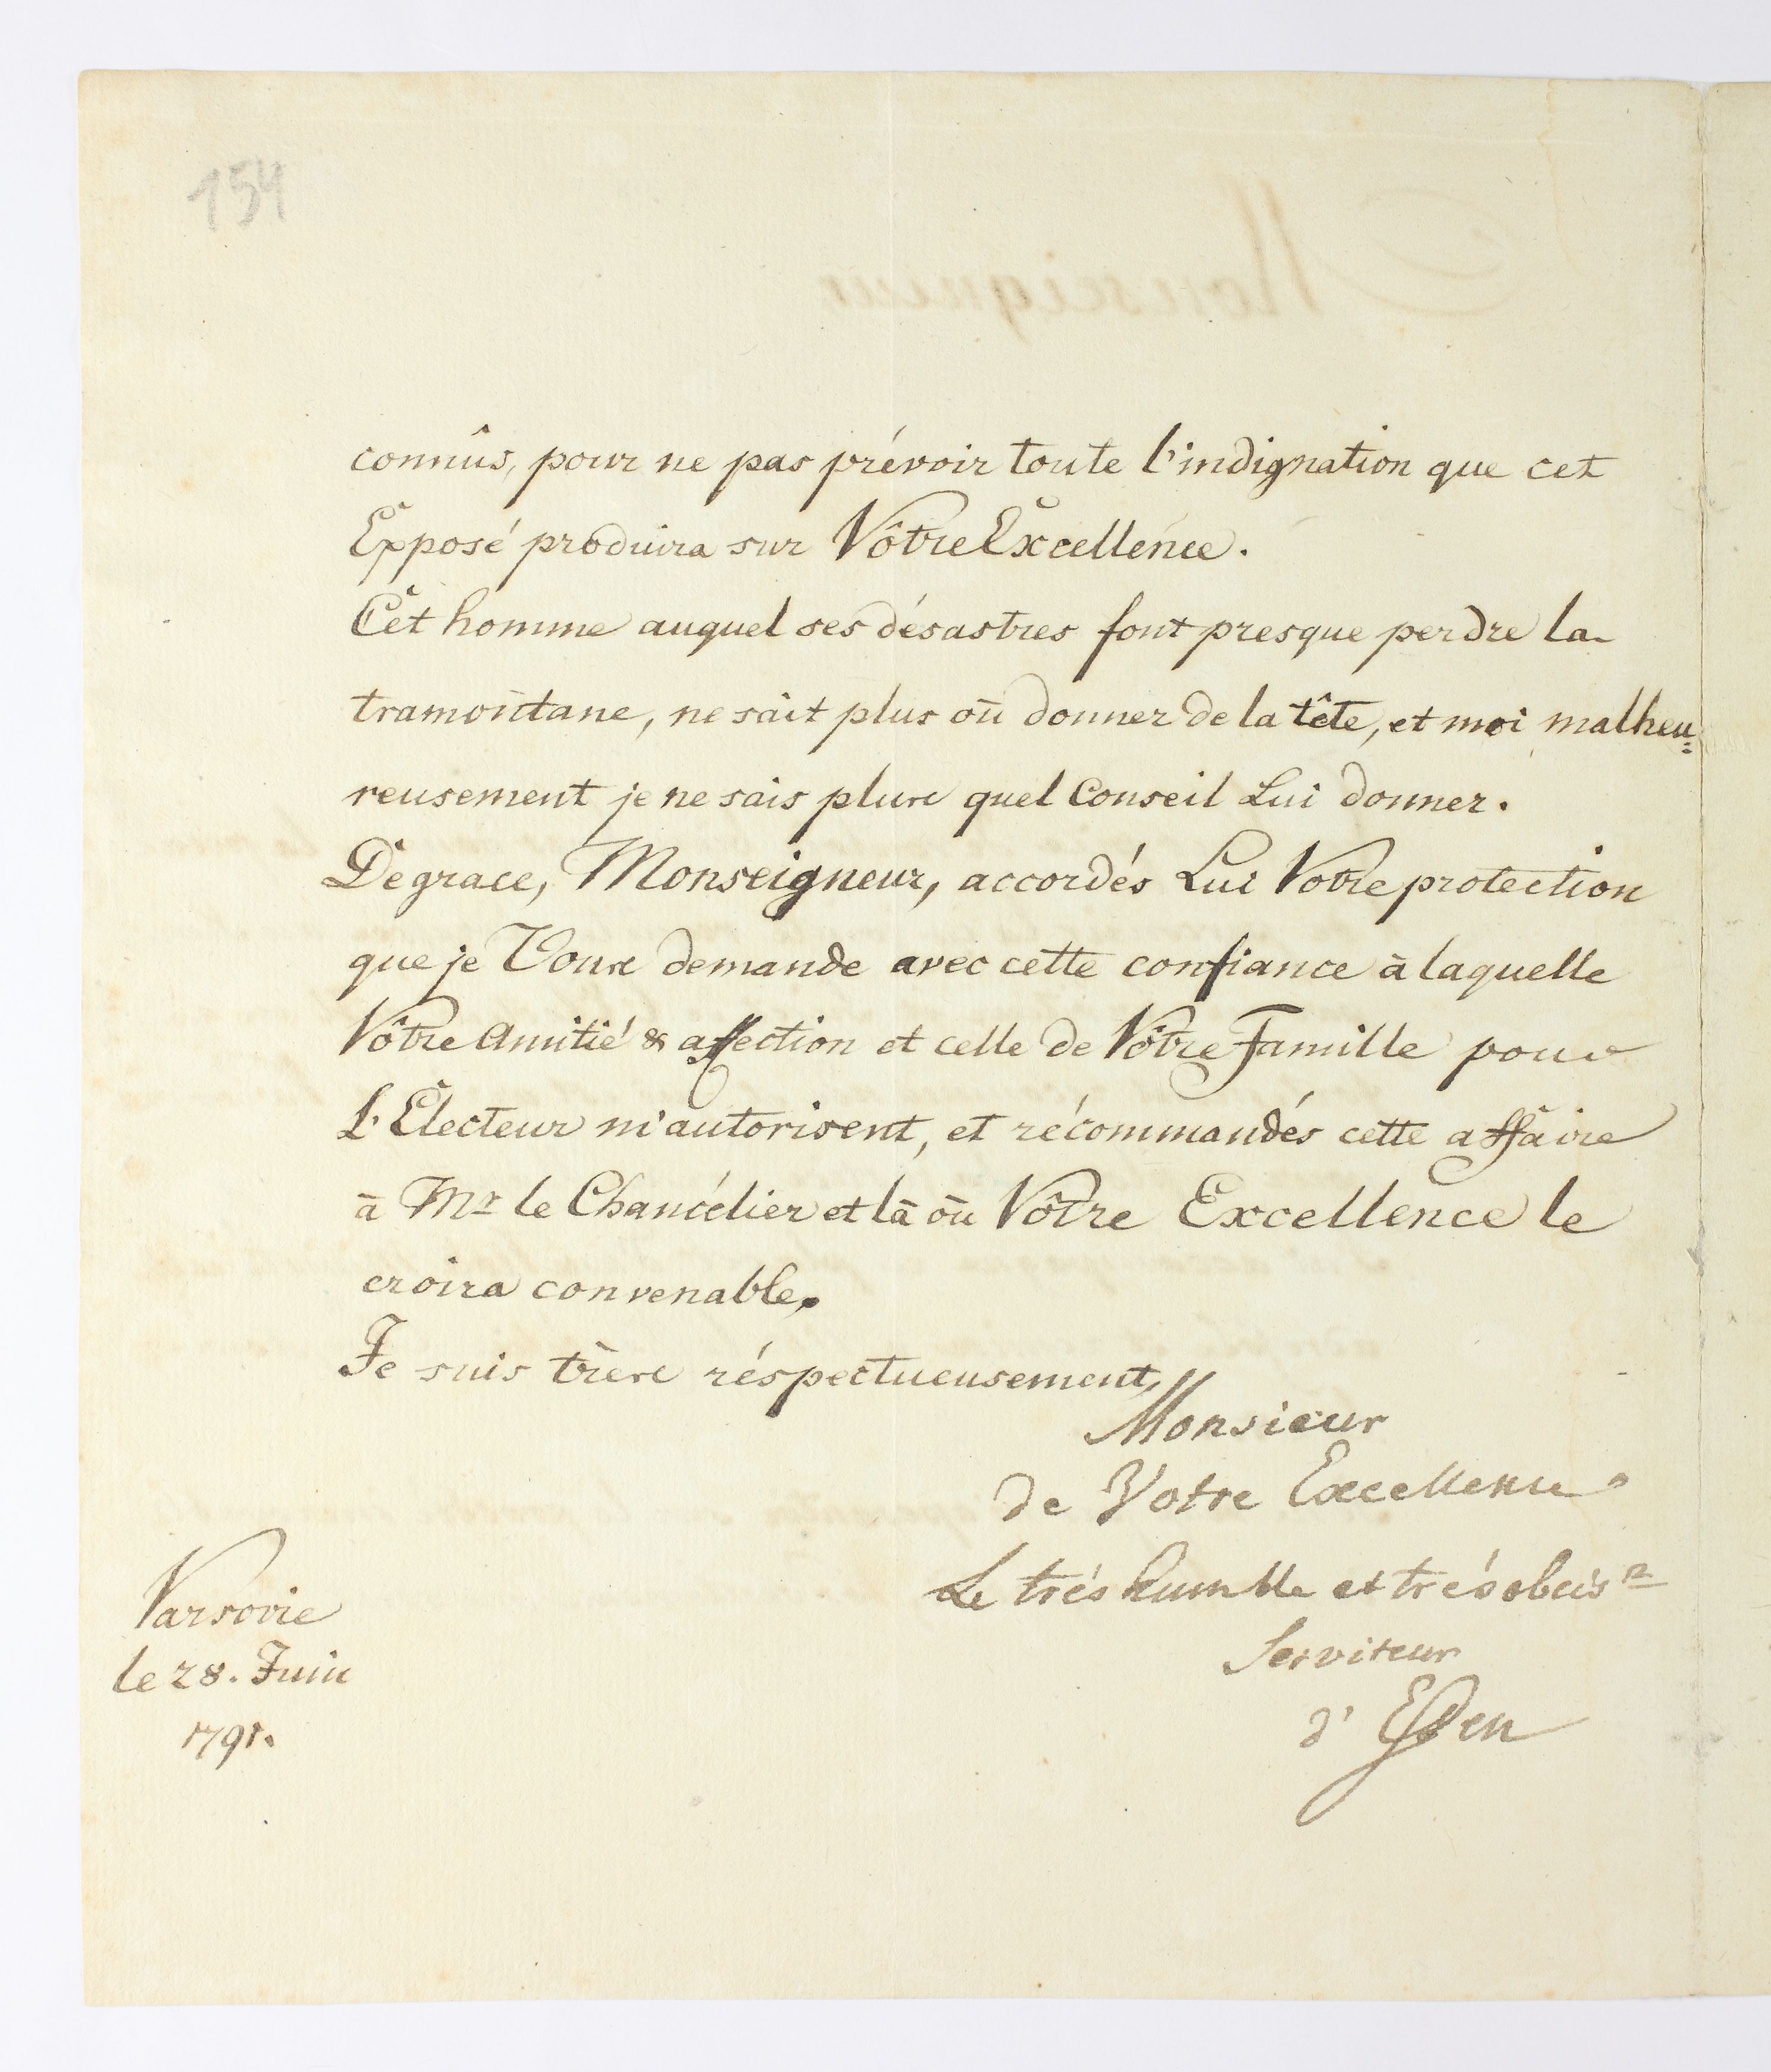 154
connûs, pour ne pas prévoir toute l'indignation que cet
Exposé produira sur Vôtre Excellence.
Cet homme auquel ses désastres font presque perdre la
tramontane, ne sait plus où donner de la tête, et moi malheu=
reusement je ne sais plus quel Conseil Lui donner.
De grace, Monseigneur, accordés Lui Votre protection
que je Vous demande avec cette confiance à laquelle
Vôtre Amitié & affection et celle de Vôtre Famille pour
L'Electeur m'autorisent, et récommandés cette affaire
à Mr le Chancélier et là où Vôtre Excellence le
croira convenable.
Je suis très réspectueusement,
Monsieur
de Votre Excellence
Le trés humble et trés obeis
Serviteur
d'Essen
Varsovie
le 28. Juin
1791.